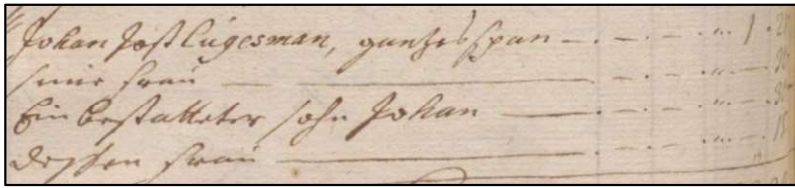 Johan Jost Lügesman, gantzes span — . — . — . — 1 .
seine frau — . — . — . —
Ein bestatteter sohn Johan — . — . — . —
deßen frau — . — . — . —